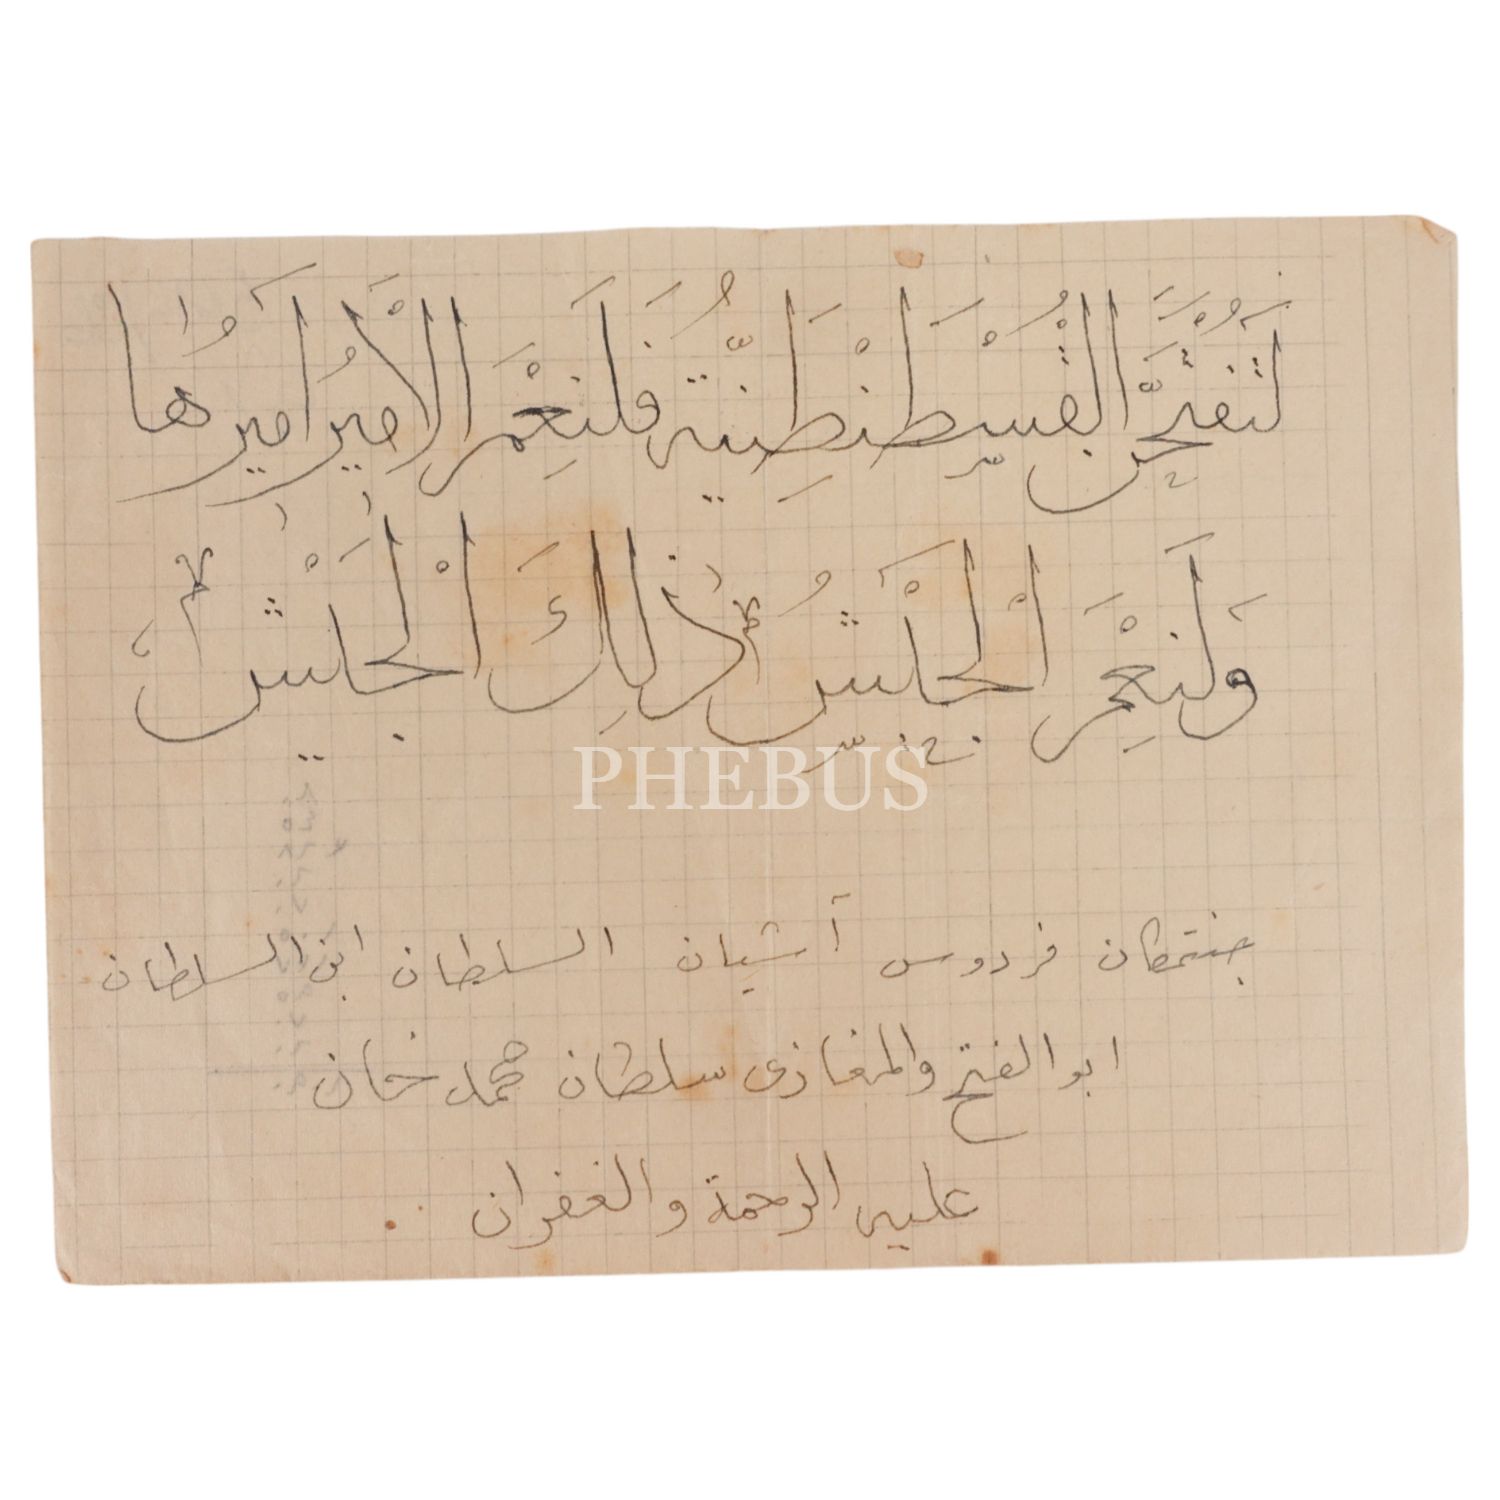 لَتُفْتَحَنَّ الْقُسْطَنْطِنِيَّةُ فَلَنِعْمَ الْاَمِيرُ اَمِيرُهَا
وَلَنِعْمَ الْجَيْشُ ذٰلِكَ الْجَيْشُ
PHEBUS
جنتمكان فردوس آشيان السلطان ابن السلطان
ابو الفتح والمغازى سلطان محمد خان
عليه الرحمة والغفران